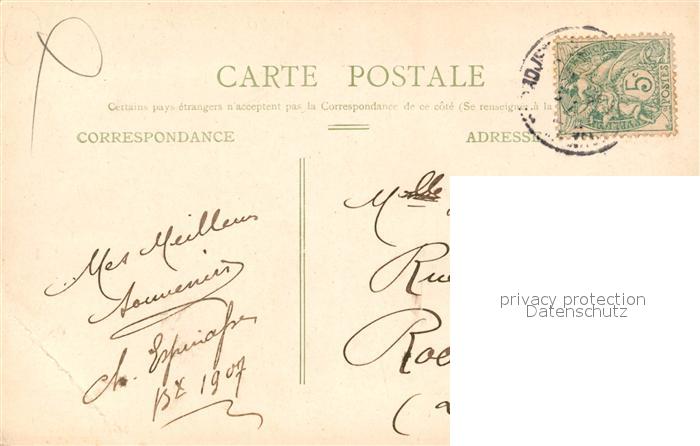 CARTE POSTALE
Certains pays étrangers n'acceptent pas la Correspondance de ce côté (Se renseigner à la
CORRESPONDANCE
ADRESSE
5c
POSTES
Mes Meilleurs
Souvenirs
Ch. Espinasse
Bx 1907
Mlle
Rue
Roc
privacy protection
Datenschutz